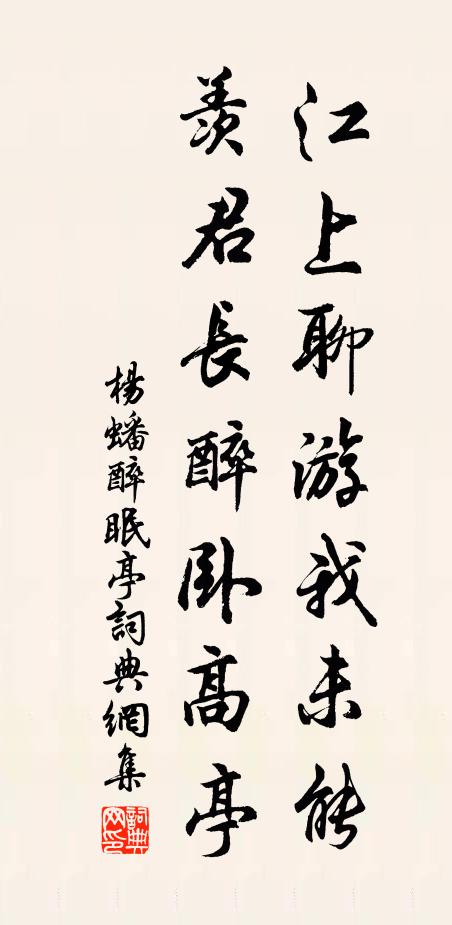 江上聊游我未能
羨君長醉卧高亭
楊蟠醉眠亭詞典網集
詞典网印